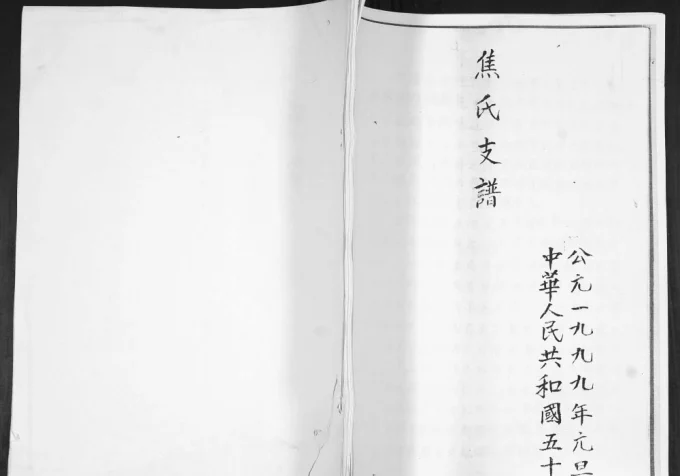 公元一九九九年元旦
中華人民共和國五十
焦氏支譜